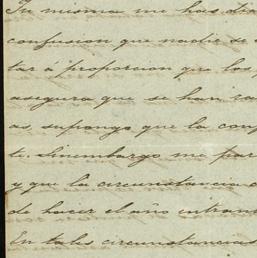 Tu misma me haces dia
confusion que nadie se
tar a' proporcion que los p
asegura que se han ca
as, supongo que la conf
te. Sinembargo me par
y que la circunstancia
de hacer el año entran
En tales circunstancias